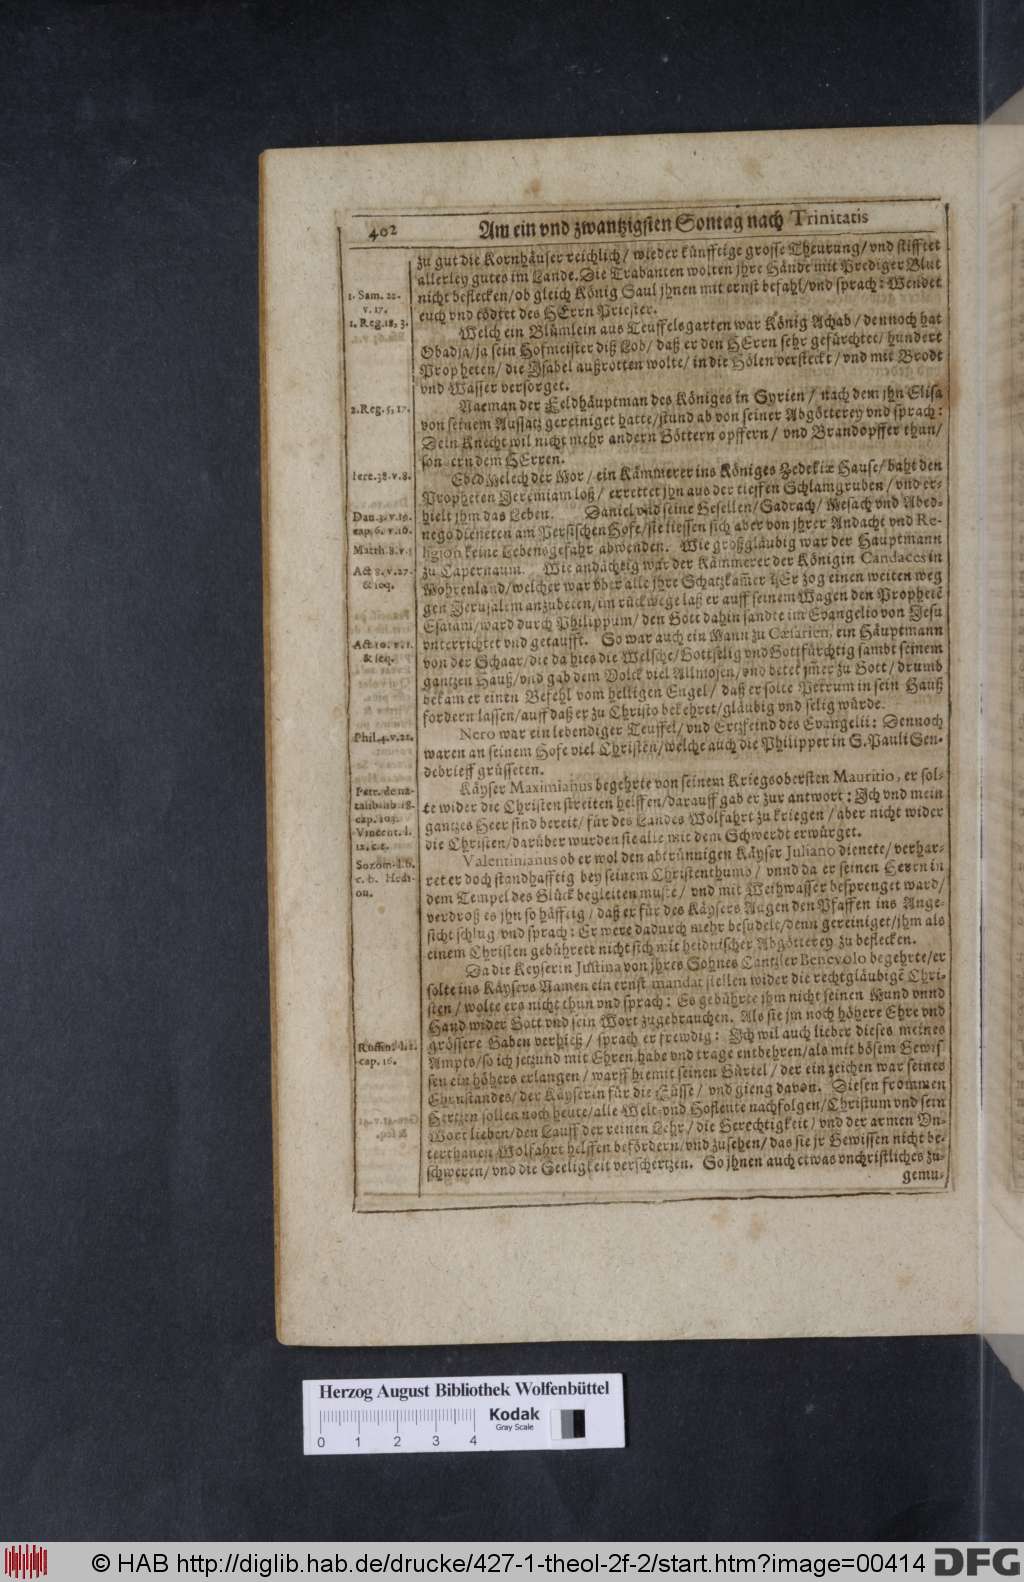 402
Am ein vnd zwantzigsten Sontag nach Trinitatis
zu gut die Kornhäuser reichlich/ wieder künfftige grosse Theurung/ vnd stifftet
allerley gutes im Lande. Die Trabanten wolten jhre Hände mit Prediger Blut
nicht beflecken/ob gleich König Saul jhnen mit ernst befahl/vnd sprach: Wendet
euch vnd tödtet des HErrn Priester.
Welch ein Blümlein aus Teuffelsgarten war König Achab/ dennoch hat
Obadja/ja sein Hofmeister diß Lob/ daß er den HErrn sehr gefürchtet/ hundert
Propheten/ die Jsabel außrotten wolte/ in die Hölen versteckt/ vnd mit Brodt
vnd Wasser versorget.
Naeman der Feldhäuptman des Königes in Syrien/ nach dem jhn Elisa
von seinem Aussatz gereiniget hatte/stund ab von seiner Abgötterey vnd sprach:
Dein Knecht wil nicht mehr andern Göttern opffern/ vnd Brandopffer thun/
son ern dem HErren.
Ebed Melech der Mor/ ein Kämmerer ins Königes Zedekiæ Hause/ baht den
Propheten Jeremiam loß/ errettet jhn aus der tieffen Schlamgruben/ vnd er-
hielt jhm das Leben. Daniel vnd seine Gesellen/Sadrach/ Mesach vnd Abed-
nego dieneten am Persischen Hofe/sie liessen sich aber von jhrer Andacht vnd Re-
ligion keine Lebensgefahr abwenden. Wie großgläubig war der Hauptmann
zu Capernaum. Wie andächtig war der Kämmerer der Königin Candaces in
Mohrenland/welcher war vber alle jhre Schatzkam̃er? Er zog einen weiten weg
gen Jerusalem anzubeten/im rückwege laß er auff seinem Wagen den Prophetẽ
Esaiam/ward durch Philippum/ den Gott dahin sandte im Evangelio von Jesu
vnterrichtet vnd getaufft. So war auch ein Mann zu Cæsarien, ein Häuptmann
von der Schaar/die da hies die Welsche/Gottselig vnd Gottfürchtig sambt seinem
gantzen Hauß/vnd gab dem Volck viel Allmosen/vnd betet jm̃er zu Gott/ drumb
bekam er einen Befehl vom heiligen Engel/ daß er solte Petrum in sein Hauß
fordern lassen/auff daß er zu Christo bekehret/gläubig vnd selig würde.
Nero war ein lebendiger Teuffel/ vnd Ertzfeind des Evangelii: Dennoch
waren an seinem Hofe viel Christen/welche auch die Philipper in S. Pauli Sen-
debrieff grüsseten.
Käyser Maximianus begehrte von seinem Kriegsobersten Mauritio, er sol-
te wider die Christen streiten helffen/darauff gab er zur antwort: Jch vnd mein
gantzes Heer sind bereit/ für des Landes Wolfahrt zu kriegen/ aber nicht wider
die Christen/darüber wurden sie alle mit dem Schwerdt erwürget.
Valentinianus ob er wol den abtrünnigen Käyser Juliano dienete/ verhar-
ret er doch standhafftig bey seinem Christenthumb/ vnnd da er seinen Herrn in
dem Tempel des Glück begleiten muste/ vnd mit Weihwasser besprenget ward/
verdroß es jhn so häfftig/ daß er für des Käysers Augen den Pfaffen ins Ange-
sicht schlug vnd sprach: Er were dadurch mehr besudelt/denn gereiniget/jhm als
einem Christen gebührete nicht sich mit heidnischer Abgötterey zu beflecken.
Da die Keyserin Justina von jhres Sohnes Cantzler Benevolo begehrte/er
solte ins Käysers Namen ein ernst mandat stellen wider die rechtgläubigẽ Chri-
sten/ wolte ers nicht thun vnd sprach: Es gebührte jhm nicht seinen Mund vnnd
Hand wider Gott vnd sein Wort zugebrauchen. Als sie jm noch höhere Ehre vnd
grössere Gaben verhieß/ sprach er frewdig: Jch wil auch lieber dieses meines
Ampts/so ich jetzund mit Ehren habe vnd trage entbehren/als mit bösem Gewis
sen ein höhers erlangen/ warff hiemit seinen Gürtel/ der ein zeichen war seines
Ehrnstandes/ der Käyserin für die Füsse/ vnd gieng davon. Diesen frommen
Hertzen sollen noch heute/alle Welt-vnd Hofleute nachfolgen/Christum vnd sein
Wort lieben/den Lauff der reinen Lehr/ die Gerechtigkeit/ vnd der armen Vn-
terthanen Wolfahrt helffen befördern/vnd zusehen/ das sie jr Gewissen nicht be-
schweren/ vnd die Seeligkeit verschertzen. So jhnen auch etwas vnchristliches zu-
gemu-
1. Sam. 22.
v. 17.
1. Reg. 18, 3.
2. Reg. 5, 17.
Iere. 38. v. 8.
Dan. 3. v. 16.
cap. 6. v. 10.
Matth. 8. v. 5
Act 8. v. 27.
& seq.
Act 10. v. 1.
& seq.
Phil. 4. v. 22.
Petr. de na-
talib. lib. 18.
cap. 105.
Vincent. l.
12. c. 2.
Sozom. l. 6.
c. 6. Hedi-
on.
Ruffen. l. 2.
cap. 16.
Herzog August Bibliothek Wolfenbüttel
Kodak
Gray Scale
0 1 2 3 4
© HAB http://diglib.hab.de/drucke/427-1-theol-2f-2/start.htm?image=00414
DFG